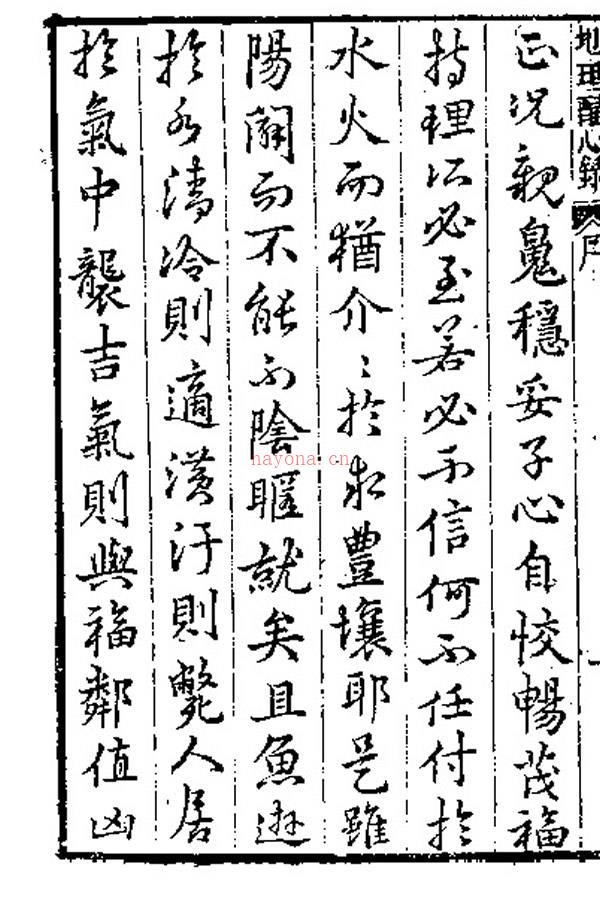 地理醒心錄 序
正况親鬼穩妥子心自恔暢茂福
特理所必至若必不信何不任付於
水火而猶介〻於求豐壤耶是雖
陽闢而不能不陰暱就矣且魚遊
於水清冷則適潢汙則斃人居
於氣中襲吉氣則與福鄰值凶
hayona.cn